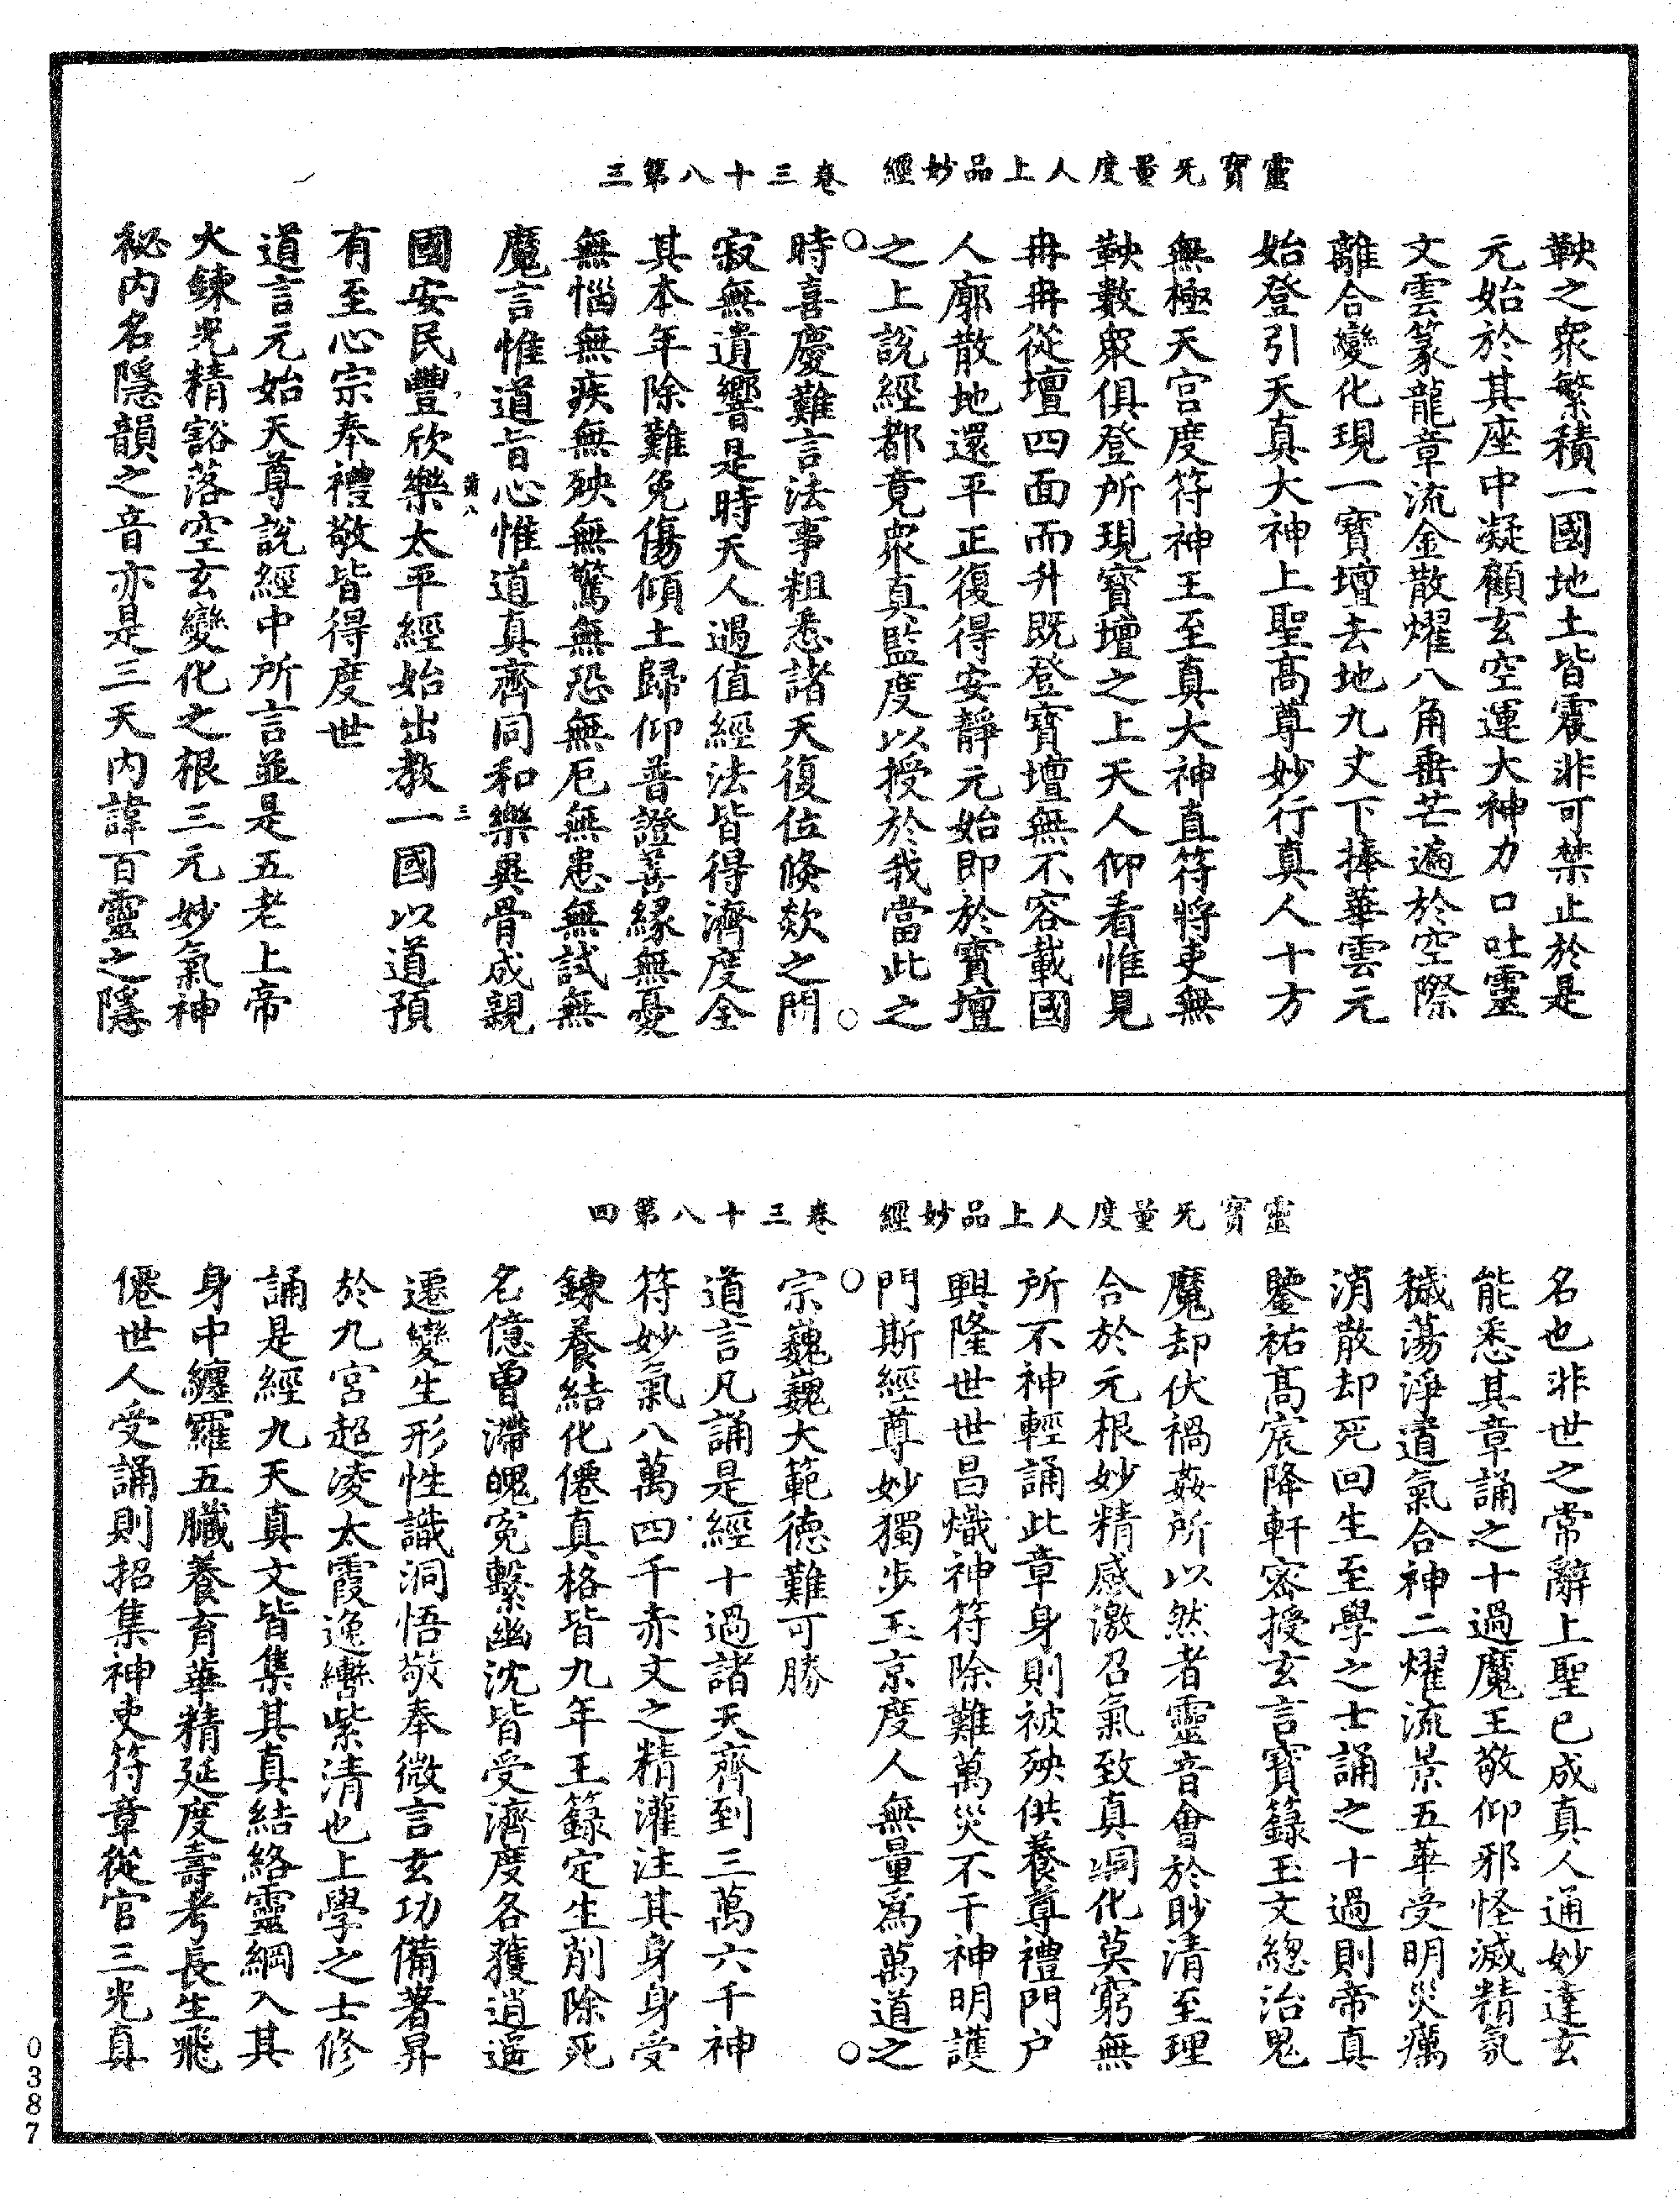 靈寳无量度人上品妙經 卷三十八第三
軮之衆繁積一國地土皆震非可禁止於是
元始於其座中凝顧玄空運大神力口吐靈
文雲篆龍章流金散燿八角垂芒遍於空際
離合變化現一寳壇去地九丈下捧華雲元
始登引天真大神上聖髙尊妙行真人十方
無極天宫度符神王至真大神直符將吏無
軮數衆俱登所現寳壇之上天人仰看惟見
冉冉從壇四面而升既登寳壇無不容載國
人廓散地還平正復得安靜元始即於寳壇
之上說經都竟衆真監度以授於我當此之
時喜慶難言法事粗悉諸天復位倐欻之間
寂無遺響是時天人遇值經法皆得濟度全
其本年除難免傷傾土歸仰普證善緣無憂
無惱無疾無殃無驚無恐無厄無患無試無
魔言惟道旨心惟道真齊同和樂異骨成親
國安民豐欣樂太平經始出教一國以道預
有至心宗奉禮敬皆得度世
道言元始天尊說經中所言並是五老上帝
大鍊光精豁落空玄變化之根三元妙氣神
秘内名隱韻之音亦是三天内諱百靈之隱
靈寳无量度人上品妙經 卷三十八第四
名也非世之常辭上聖已成真人通妙達玄
能悉其章誦之十過魔王敬仰邪怪滅精氛
穢蕩淨道氣合神二燿流景五華受明災癘
消散却死回生至學之士誦之十過則帝真
鑒祐髙宸降軒密授玄言寳籙玉文總治鬼
魔却伏禍姦所以然者靈音會於眇清至理
合於元根妙精感激召氣致真洞化莫窮無
所不神輕誦此章身則被殃供養尊禮門户
興隆世世昌熾神符除難萬災不干神明護
門斯經尊妙獨步玉京度人無量爲萬道之
宗巍巍大範德難可勝
道言凡誦是經十過諸天齊到三萬六千神
符妙氣八萬四千赤文之精灌注其身身受
鍊養結化僊真格皆九年王籙定生削除死
名億曽滯魄寃繫幽沈皆受濟度各獲逍遥
遷變生形性識洞悟敬奉微言玄功備著昇
於九宫超凌太霞逸轡紫清也上學之士修
誦是經九天真文皆集其真結絡靈綱入其
身中纏羅五臟養育華精延度壽考長生飛
僊世人受誦則招集神吏符章從官三光真
0387